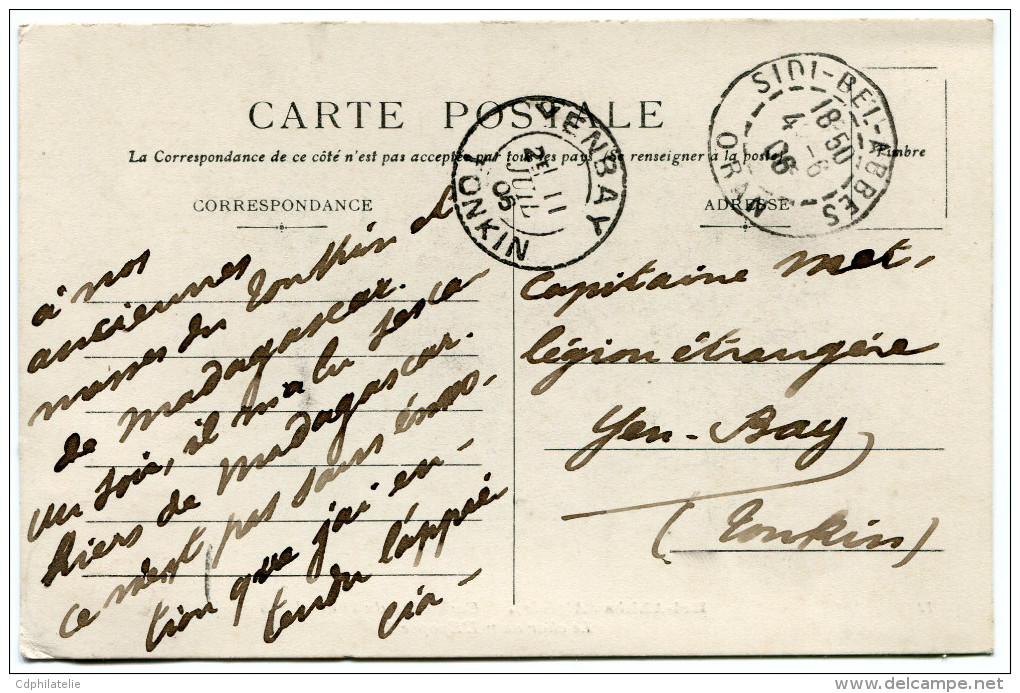 CARTE POSTALE
La Correspondance de ce côté n'est pas acceptée par tous les pays (se renseigner à la poste)
Timbre
CORRESPONDANCE
ADRESSE
YENBAY
2E 11
JUIL
05
TONKIN
SIDI-BEL-ABBÈS
18-50
4-6
06
ORAN
à nos
anciennes
du Tonkin et
de Madagascar.
un soir, il m'a lu ses ca
hiers de Madagascar.
ce n'est pas sans émo-
tion que j'ai en-
tendu l'appré
cia-
Capitaine Met,
légion étrangére
Yen-Bay
(Tonkin)
Cdphilatelie
delcampe.net